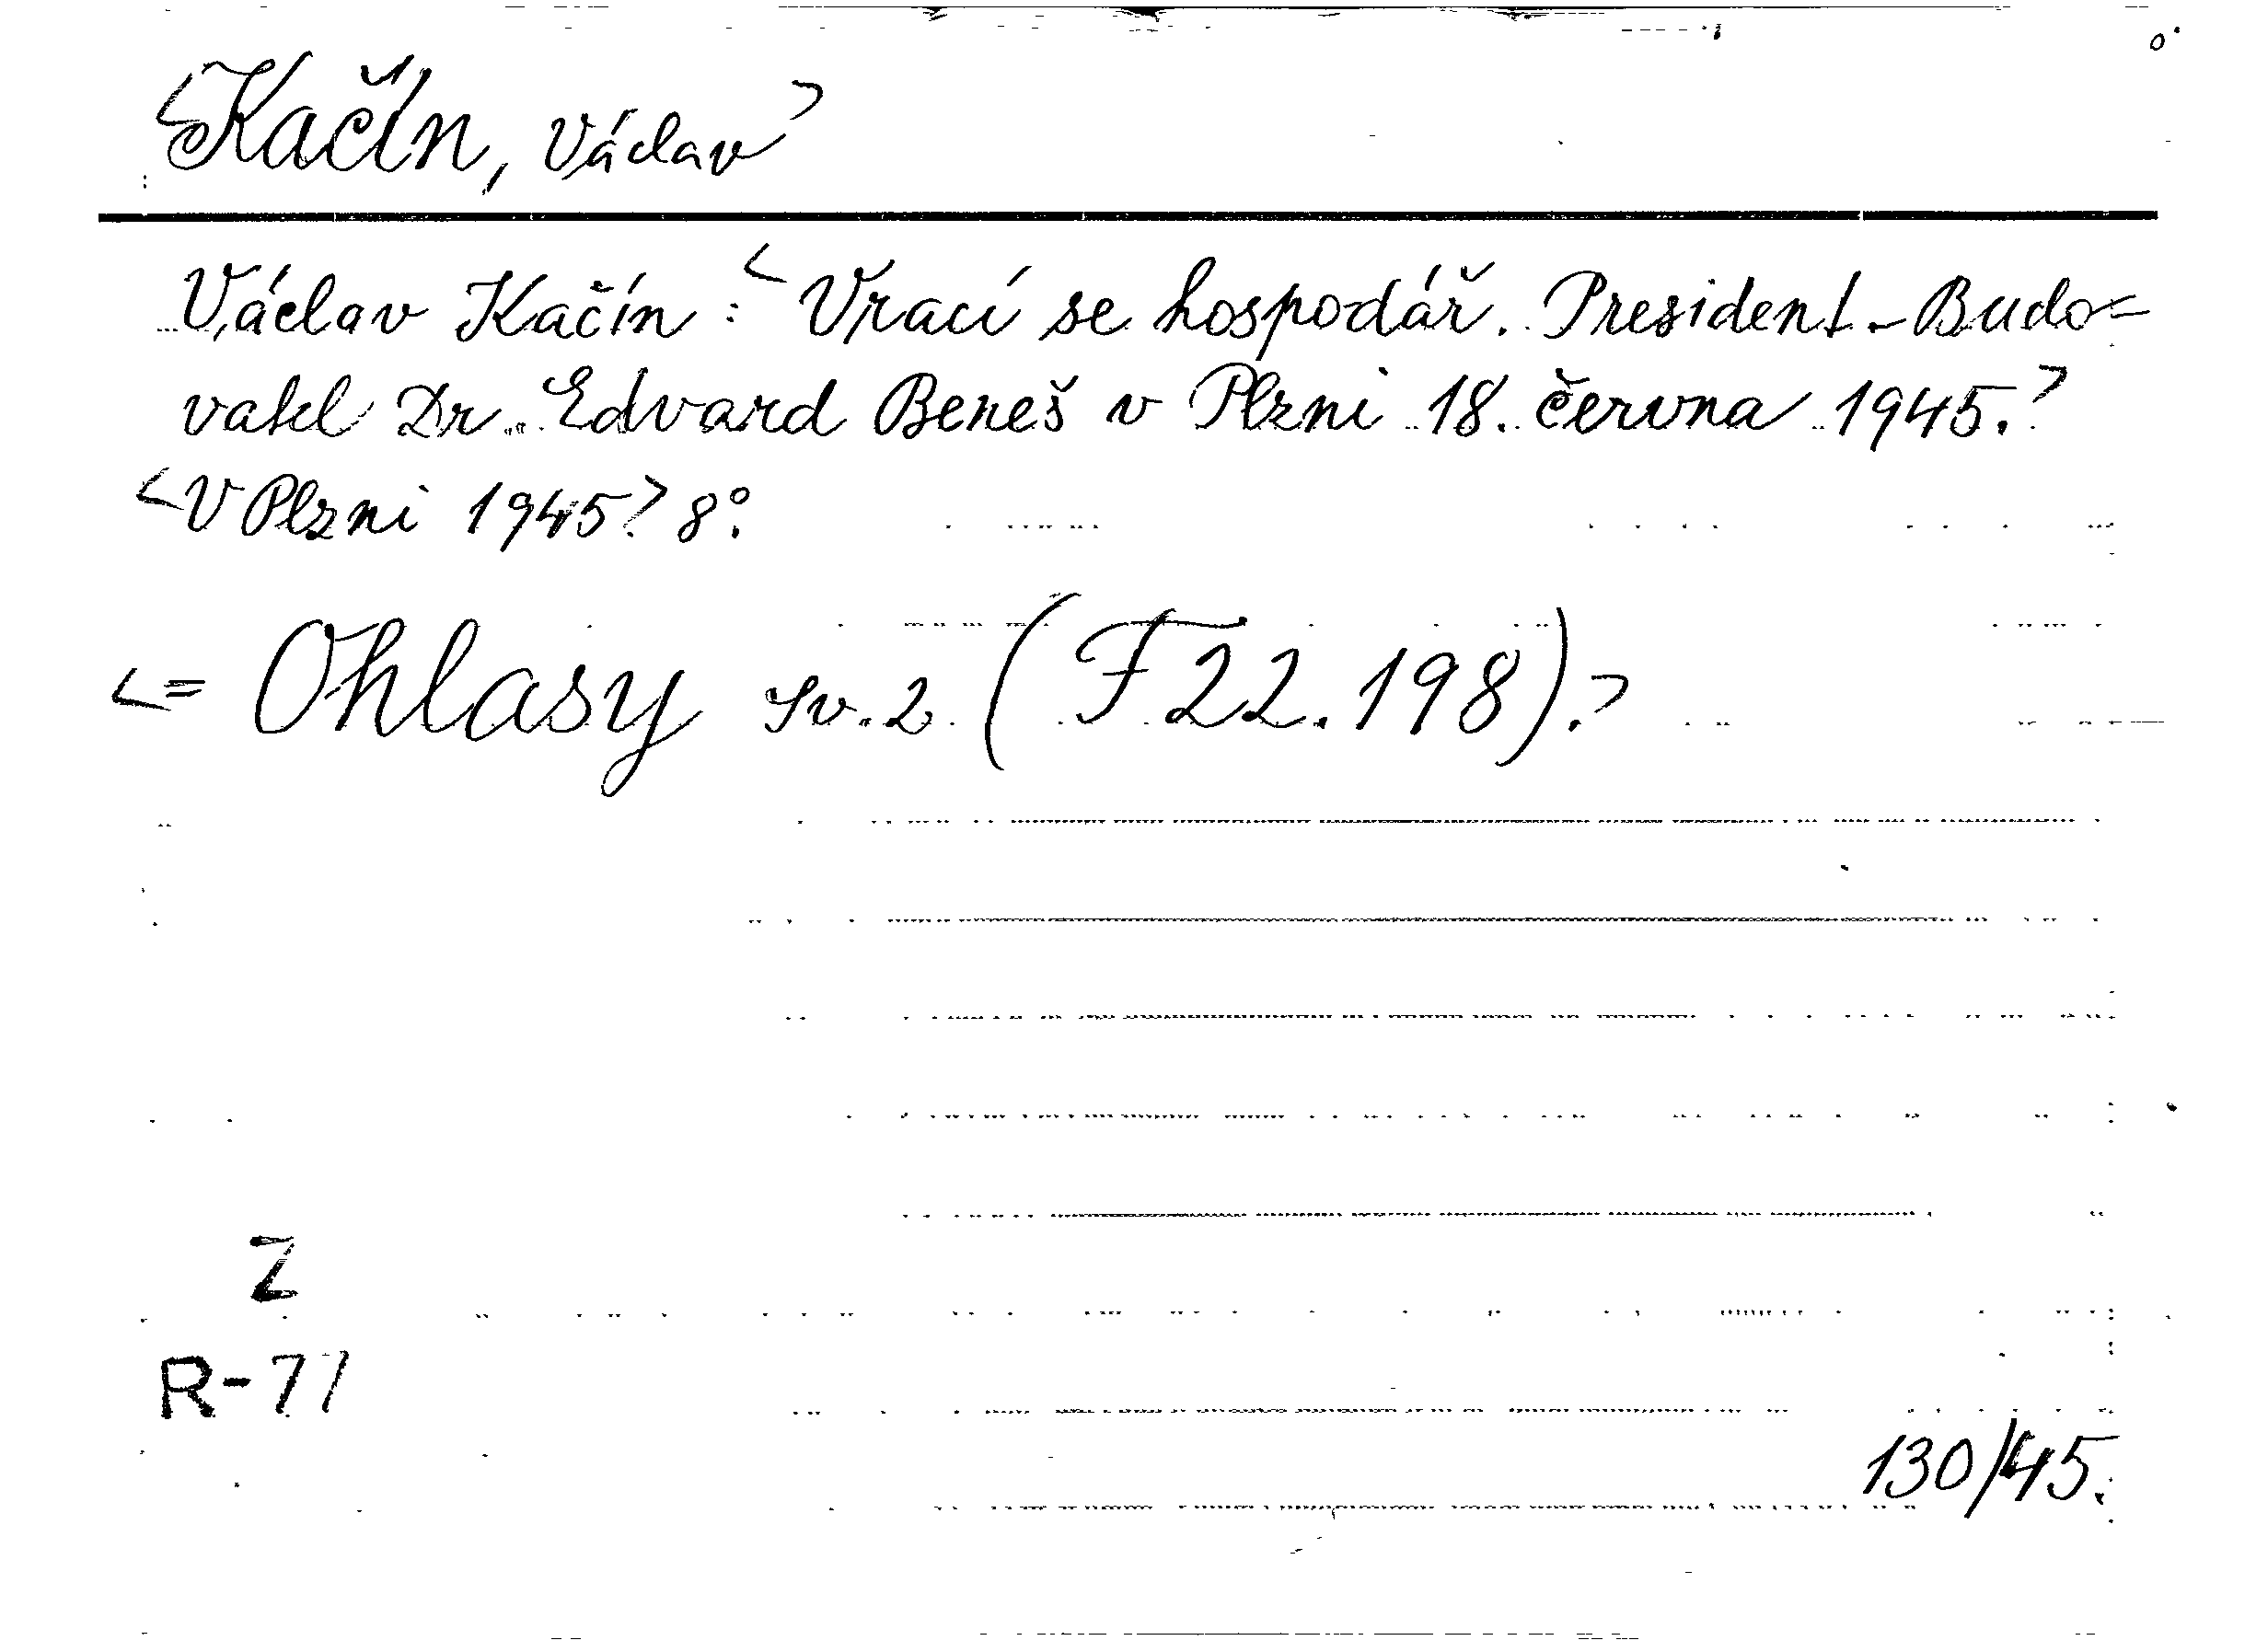 <Kačín, Václav>
Václav Kačín: <Vrací se hospodář. President-Budo-
vatel Dr. Edvard Beneš v Plzni 18. června 1945.>
<V Plzni 1945> 8°.
<= Ohlasy sv. 2 (F 22.198).>
Z
R-77
130/45.